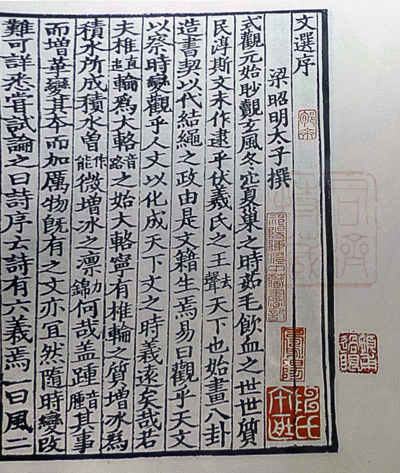 文選序
梁昭明太子撰
式觀元始眇觀玄風冬穴夏巢之時茹毛飲血之世世質
民淳斯文未作逮乎伏羲氏之王去聲天下也始畫八卦
造書契以代結繩之政由是文籍生焉易曰觀乎天文
以察時變觀乎人文以化成天下文之時義遠矣哉若
夫椎直輪為大輅音路之始大輅寧有椎輪之質增冰為
積水所成積水曾作能微增冰之凛力錦何哉蓋踵音其事
而增華變其本而加厲物既有之文亦宜然隨時變改
難可詳悉嘗試論之曰詩序云詩有六義焉一曰風二